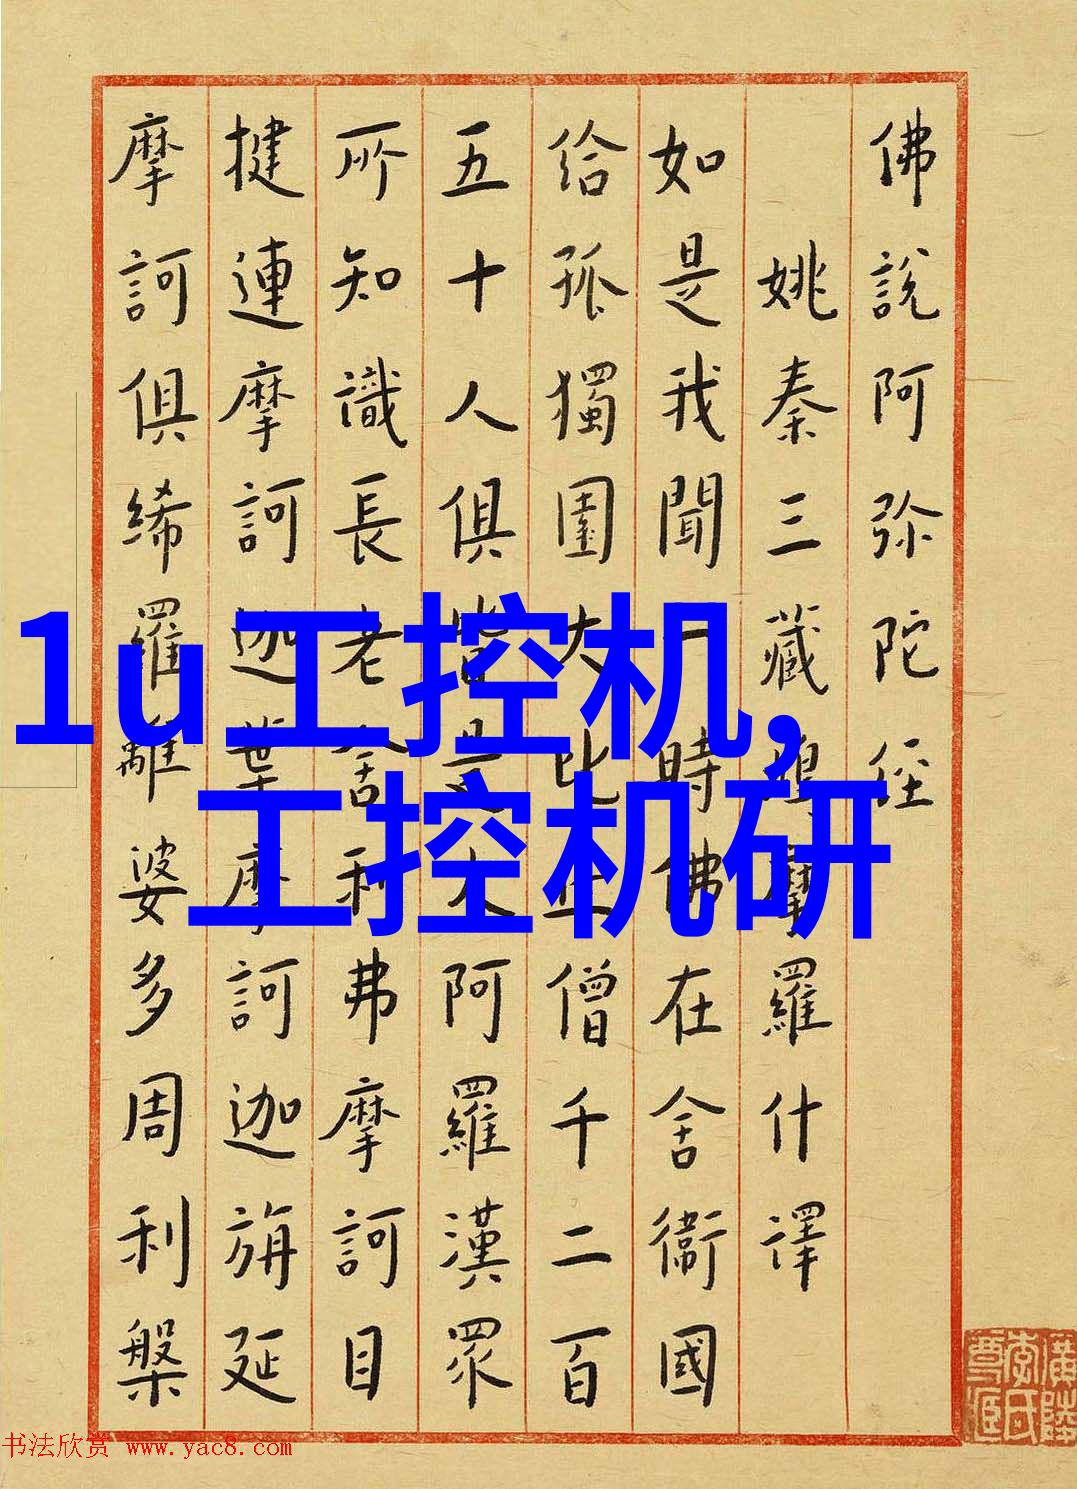 佛說阿弥陀経
姚秦三藏鳩摩羅什譯
如是我聞一時佛在舍衞國
給孤獨園大比丘僧千二百
五十人俱皆是大阿羅漢眾
所知識長老舍利弗摩訶目
揵連摩訶迦葉摩訶迦旃延
摩訶俱絺羅離婆多周利槃
1u工控机,
工控机研
书法欣赏 www.yac8.com